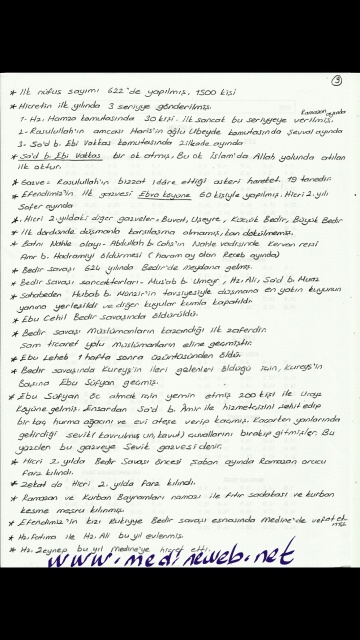 3
* İlk nüfus sayımı 622'de yapılmış. 1500 kişi
* Hicretin ilk yılında 3 seriyye gönderilmiş.
1- Hz. Hamza komutasında 30 kişi. ilk sancak bu seriyyeye verilmiş. Ramazan ayında
2- Rasulullah'ın amcası Haris'in oğlu Ubeyde komutasında Şevval ayında
3- Sa'd b. Ebi Vakkas komutasında Zilkade ayında
* Sa'd b. Ebi Vakkas bir ok atmış. Bu ok İslam'da Allah yolunda atılan
ilk oktur.
* Gazve = Rasulullah'ın bizzat idare ettiği askeri hareket. 19 tanedir.
* Efendimiz'in ilk gazvesi Ebva köyüne 60 kişiyle yapılmış. Hicri 2. yılı
Safer ayında
* Hicri 2. yıldaki diğer gazveler = Buvat, Uşeyre, Küçük Bedir, Büyük Bedir
* İlk dördünde düşmanla karşılaşma olmamış, kan dökülmemiş.
* Batni Nahle olayı - Abdullah b. Cahş'ın Nahle vadisinde kervan reisi
Amr b. Hadramiyi öldürmesi (haram ay olan Recep ayında)
* Bedir savaşı 624 yılında Bedir'de meydana gelmiş.
* Bedir savaşı sancaktarları - Mus'ab b. Umeyr, Hz. Ali, Sa'd b. Muaz
* Sahabeden Hubab b. Münzir'in tavsiyesiyle düşmana en yakın kuyunun
yanına yerleşildi ve diğer kuyular kumla kapatıldı.
* Ebu Cehil Bedir Savaşında öldürüldü.
* Bedir savaşı Müslümanların kazandığı ilk zaferdir.
Şam ticaret yolu Müslümanların eline geçmiştir.
* Ebu Leheb 1 hafta sonra üzüntüsünden öldü.
* Bedir savaşında Kureyş'in ileri gelenleri öldüğü için, Kureyş'in
başına Ebu Süfyan geçmiş.
* Ebu Süfyan öc almak için yemin etmiş 200 kişi ile Urayz
Köyüne gelmiş. Ensardan Sa'd b. Amr ile hizmetcisini şehit edip
bir kaç hurma ağacını ve evi ateşe verip kaçmış. Kaçarken yanlarında
getirdiği seviki (kavrulmuş un, kavut) çuvallarını bırakıp gitmişler. Bu
yüzden bu gazveye Sevik gazvesi denir.
* Hicri 2. yılda Bedir Savaşı öncesi Şaban ayında Ramazan orucu
Farz kılındı.
* Zekat da Hicri 2. yılda Farz kılındı.
* Ramazan ve Kurban Bayramları namazı ile fıtır sadakası ve kurban
kesme meşru kılınmış.
* Efendimiz'in kızı Rukiyye Bedir savaşı esnasında Medine'de vefat etmiş.
* Hz. Fatıma ile Hz. Ali bu yıl evlenmiş.
* Hz. Zeynep bu yıl Medine'ye hicret etti.
www.medineweb.net